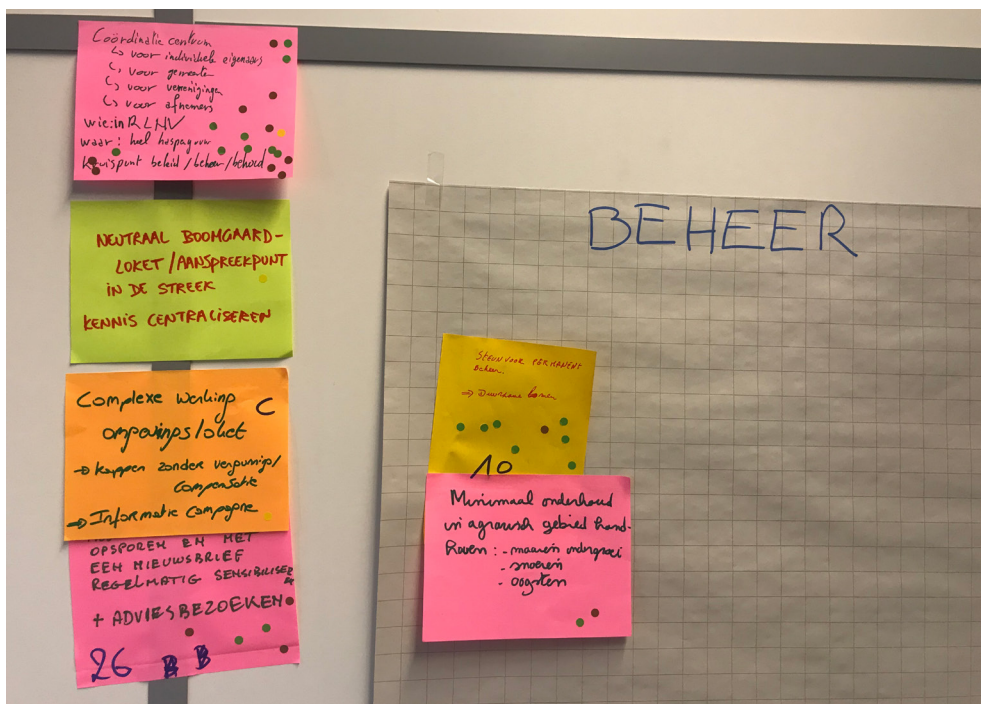 Coördinatie centrum
↳ voor individuele eigenaars
↳ voor gemeente
↳ voor verenigingen
↳ voor afnemers
wie: in RLHV
waar: heel haspengouw
Kruispunt beleid / beheer / behoud
NEUTRAAL BOOMGAARD-
LOKET / AANSPREEKPUNT
IN DE STREEK
KENNIS CENTRALISEREN
Complexe werking C
omgevingsloket
→ Kappen zonder vergunning/
compensatie
→ Informatie Campagne
OPSPOREN EN MET
EEN NIEUWSBRIEF
REGELMATIG SENSIBILISER
+ ADVIESBEZOEKEN
26 B
BEHEER
STEUN VOOR PERMANENT
Beheer.
→ Duurzame bomen
10
Minimaal onderhoud
in agrarisch gebied hand-
haven: - maaien ondergroei
- snoeien
- oogsten